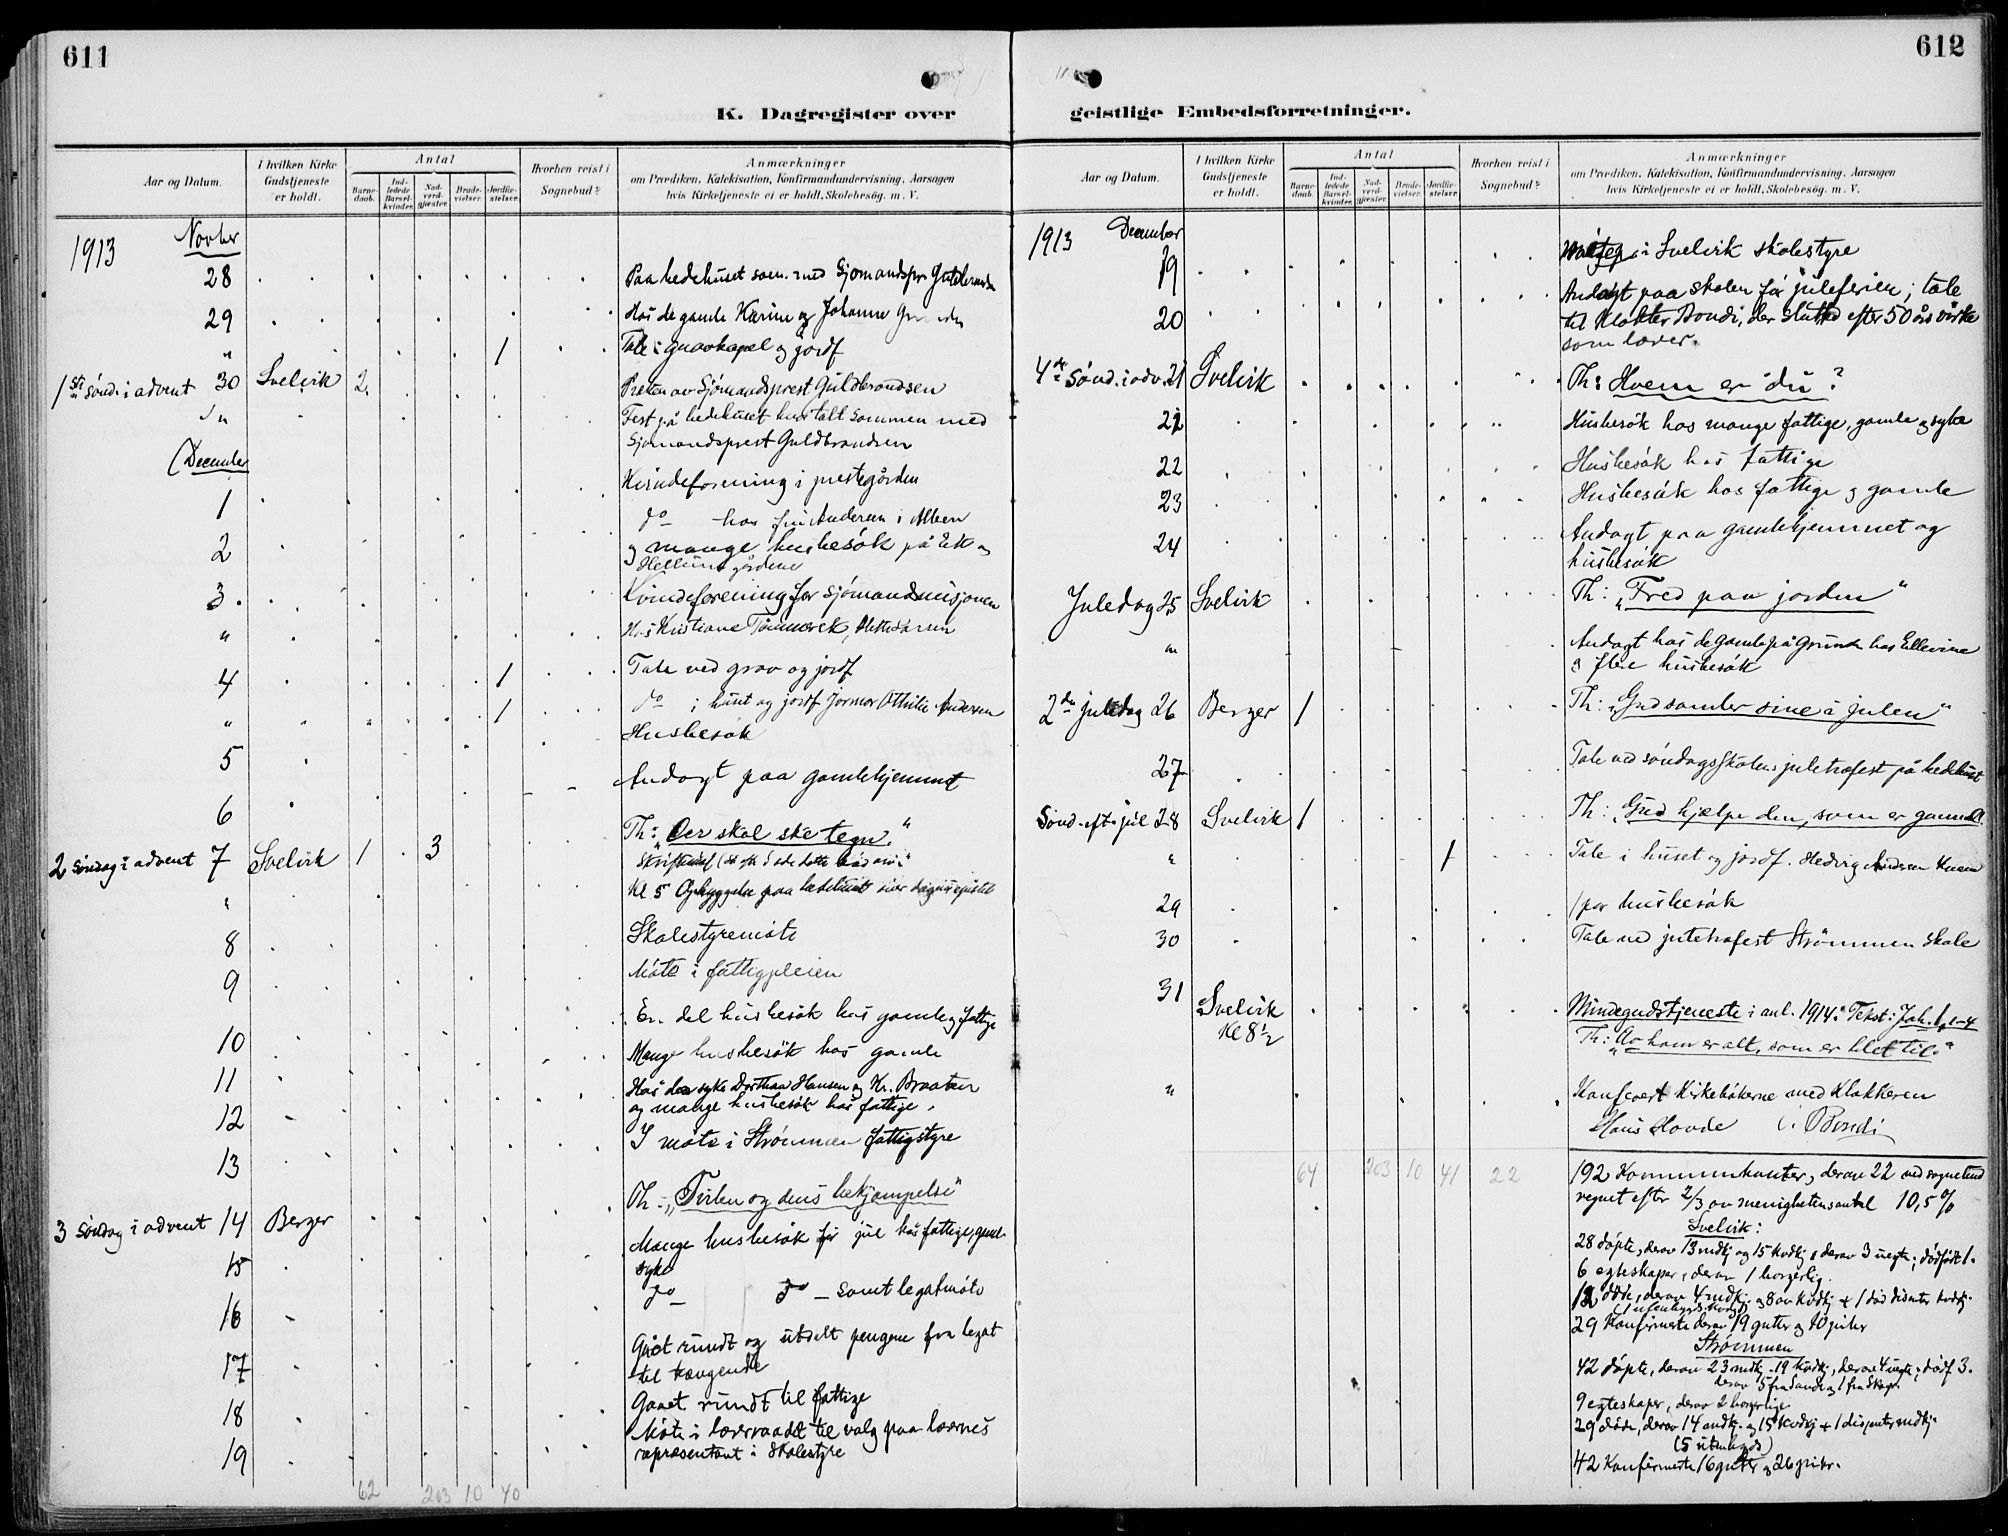 611
K. Dagregister over
Aar og Datum.
I hvilken Kirke Gudstjeneste er holdt.
Antal
Barne-daab.
Ind-ledede Barsel-kvinder.
Nad-verd-gjæster.
Brude-vielser.
Jordfæ-stelser.
Hvorhen reist i Sognebud?
Anmærkninger
om Prædiken, Katekisation, Konfirmandundervisning, Aarsagen
hvis Kirketjeneste ei er holdt, Skolebesøg. m. V.
1913 Novber
28 Paa bedehuset sam. med Sjømandspr Guldbrandsen
29 Hos de gamle Karine og Johanne
" 1 Tale i gravkapel og jordf
1ste sønd. i advent 30 Svelvik 2 Præken av Sjømandsprest Guldbrandsen
" Fest på bedehuset hvor talt sammen med
Sjømandsprest Guldbrandsen
December
1 Kvindeforening i prestegården
2 do hos fru Andersen i Alleen
og mange husbesøk på Eek og
gårdene
3 Kvindeforening for sjømandsmisjonen
" Hos Kristiane
4 1 Tale ved grav og jordf
" 1 do i huset og jordf Jormor Othilie Andersen
5 Husbesøk
6 Andagt paa gamlehjemmet
2 søndag i advent 7 Svelvik 1 3 Th: "Der skal ske tegn."
Skriftemål
" Kl 5 Opbyggelse paa bedehuset over dagens epistel
8 Skolestyremøte
9 Møte i fattigpleien
10 En del husbesøk hos gamle og fattige
11 Mange husbesøk hos gamle
12 Hos den syke Dorthea Hansen og Kr. Braaten
og mange husbesøk hos fattige.
13 I møte i Strømmen fattigstyre
3 søndag i advent 14 Berger Th: "Tvilen og dens bekjæmpelse"
15 Mange husbesøk før jul hos fattige, gamle
syke
16 do do samt legatmøte
17 Gåt rundt og utdelt pengene fra legat
til trængende
18 Gaaet rundt til fattige
19 Møte i lærerraadet til valg paa lærernes
repræsentant i skolestyre
62 203 10 40
612
geistlige Embedsforretninger.
Aar og Datum.
I hvilken Kirke Gudstjeneste er holdt.
Antal
Barne-daab.
Ind-ledede Barsel-kvinder.
Nad-verd-gjæster.
Brude-vielser.
Jordfæ-stelser.
Hvorhen reist i Sognebud?
Anmærkninger
om Prædiken, Katekisation, Konfirmandundervisning, Aarsagen
hvis Kirketjeneste ei er holdt, Skolebesøg. m. V.
1913 December
19 i Svelvik skolestyre
20 Andagt paa skolen før juleferien; tale
til klokker Bondi, der sluttet efter 50 års virke
som lærer.
4de Sønd. i adv. 21 Svelvik Th: Hvem er du?
21 Husbesøk hos mange fattige, gamle og syke
22 Husbesøk hos fattige
23 Husbesøk hos fattige og gamle
24 Andagt paa gamlehjemmet og
husbesøk
Juledag 25 Svelvik Th: "Fred paa jorden"
" Andagt hos de gamle på Grunden hos Ellevine
og flere husbesøk
2den juledag 26 Berger 1 Th: "Gud samler sine i julen"
27 Tale ved søndagsskolens juletræfest på bedehuset
Sønd. eft. jul 28 Svelvik 1 Th: "Gud hjælpe den, som er gammel
" 1 Tale i huset og jordf. Hedvig Andersen
29 1 par husbesøk
30 Tale ved juletræfest Strømmen skole
31 Svelvik
Kl 8 1/2
Mindegudstjeneste i anl. 1914. Tekst: Joh. 1, 1-4
Th: "Av ham er alt, som er blet til."
" Konferert Kirkebøkerne med Klokkeren
Hans Hovde Bondi
64 203 10 41 22
192 Kommunikanter, derav 22 ved sognebud
regnet efter 2/3 av menighetens antal 10,5 %
Svelvik:
28 døpte, derav 13 mdkj og 15 kvdkj, derav 3 uegte; dødfødt 1.
6 egteskaper, derav 1 borgerlig.
12 døde, derav 4 mdkj. og 8 av kvdkj + 1 død disenter kvdkj.
29 Konfirmerte derav 19 gutter og 10 piker
Strømmen
42 døpte, derav 23 mdkj. 19 kvdkj, derav 4 uegte; dødf 3.
derav 5 fra Sande og 1 fra Skoger
9 egteskaper, derav 2 borgerlige
29 døde, derav 14 mdkj. og 15 kvdkj + 1 disenter mdkj.
(5 utenbygds)
42 Konfirmerte 16 gutter og 26 piker.